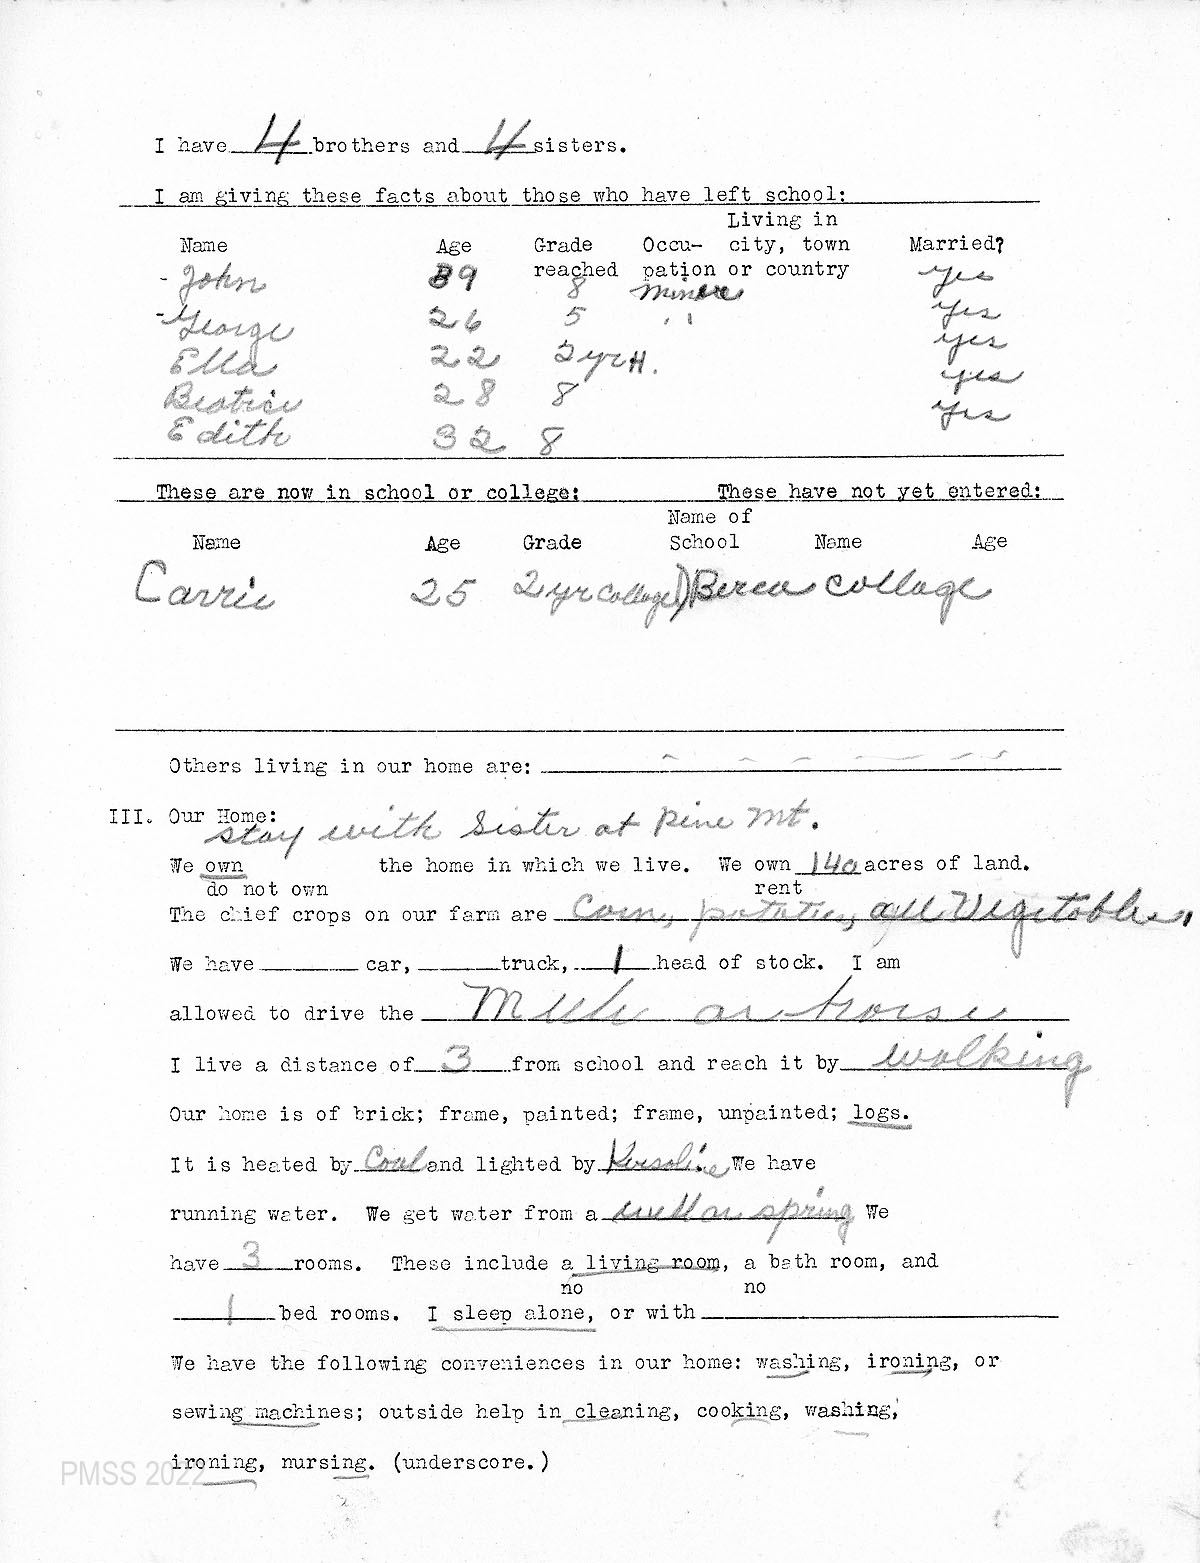 I have 4 brothers and 4 sisters.
I am giving these facts about those who have left school:
Living in
Name Age Grade Occu- city, town Married?
reached pation or country
- John 39 8 minere yes
- George 26 5 " yes
Ella 22 2 yr H. yes
Beatrice 28 8 yes
Edith 32 8 yes
These are now in school or college: These have not yet entered:
Name of
Name Age Grade School Name Age
Carrie 25 2 yr collage) Berea collage
Others living in our home are: - - - - - -
III. Our Home:
stay with sister at Pine Mt.
We own the home in which we live. We own 140 acres of land.
do not own rent
The chief crops on our farm are Corn, potatoes, all Vegetables.
We have car, truck, 1 head of stock. I am
allowed to drive the Mule or horse
I live a distance of 3 from school and reach it by walking
Our home is of brick; frame, painted; frame, unpainted; logs.
It is heated by Coal and lighted by Kersoline We have
running water. We get water from a well or spring We
have 3 rooms. These include a living room, a bath room, and
no no
1 bed rooms. I sleep alone, or with
We have the following conveniences in our home: washing, ironing, or
sewing machines; outside help in cleaning, cooking, washing,
ironing, nursing. (underscore.)
PMSS 2022